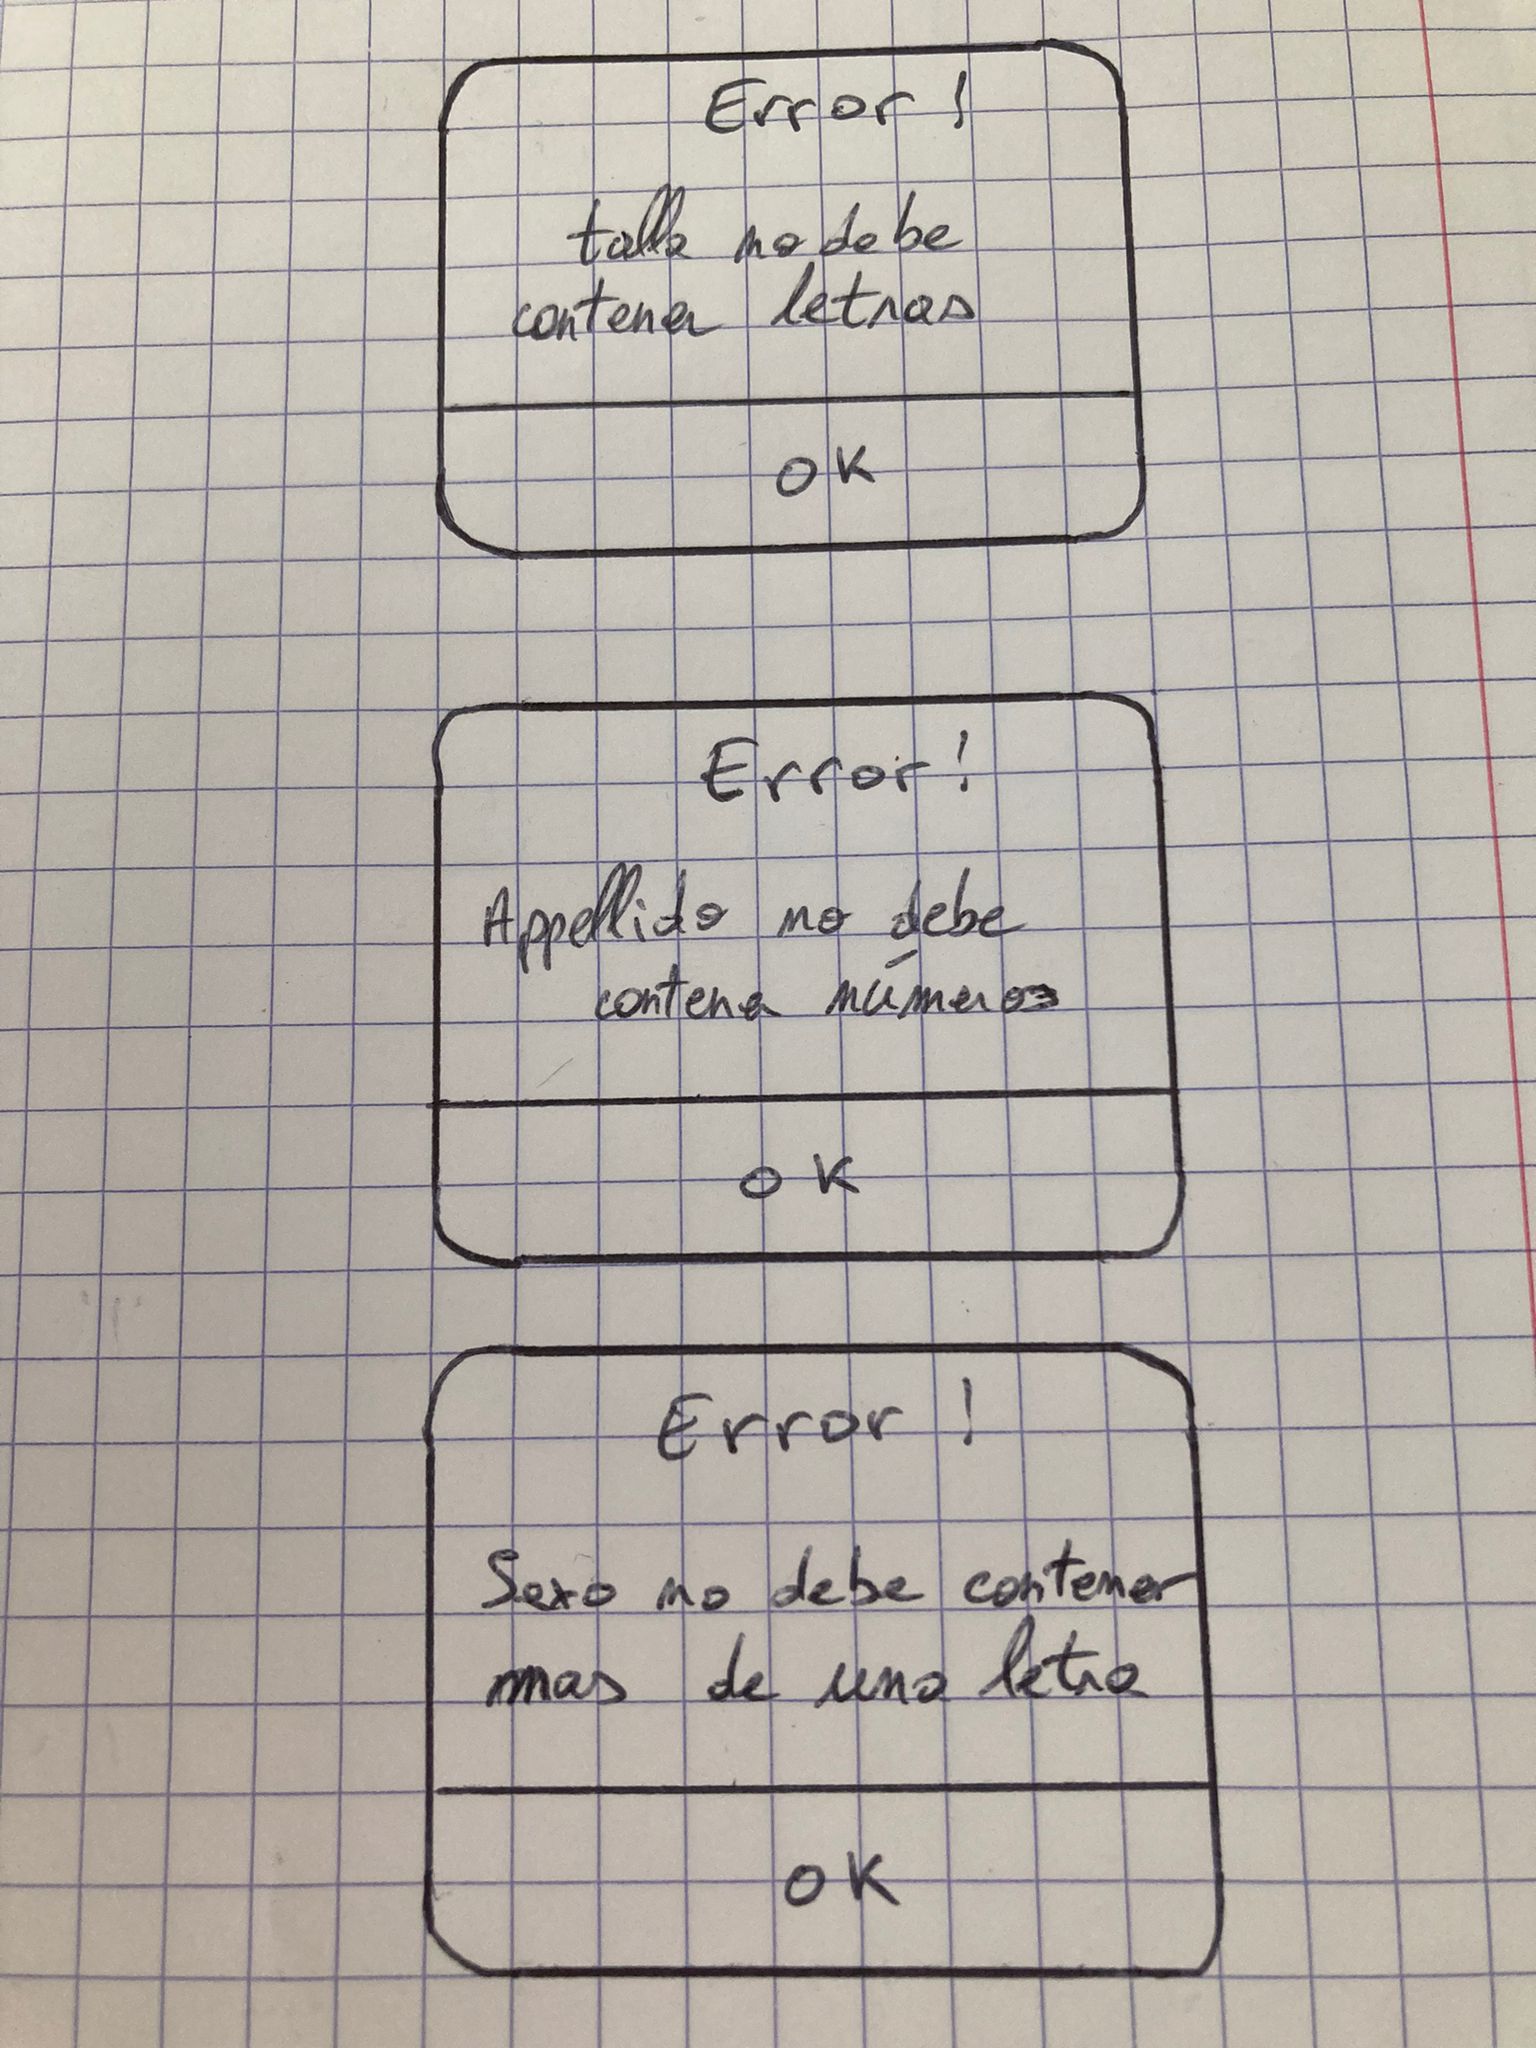 Error !
talla no debe
contener letras
OK
Error !
Appellido no debe
contener números
OK
Error !
Sexo no debe contener
mas de una letra
OK